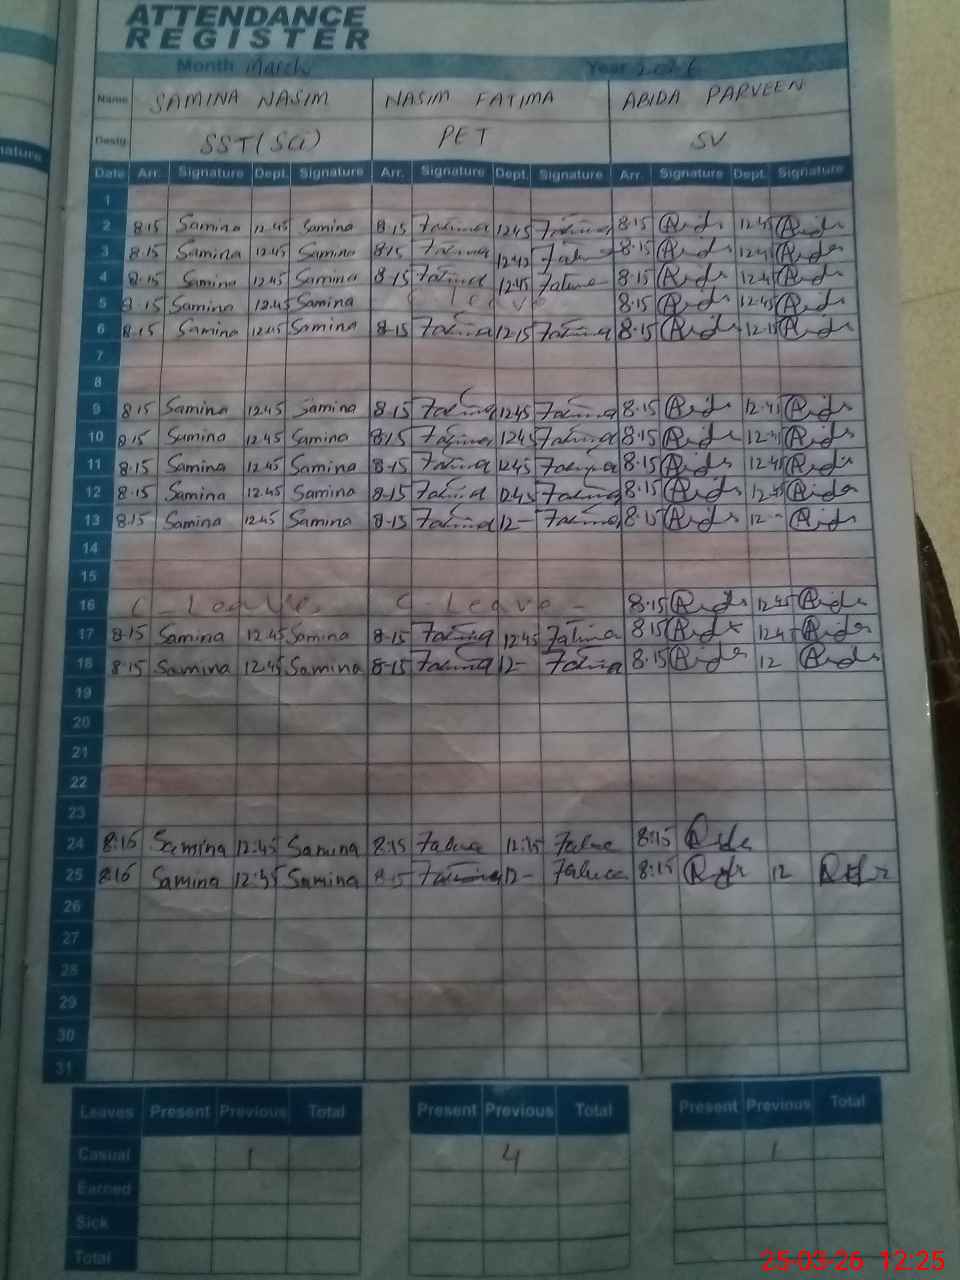 ature
ATTENDANCE
REGISTER
Month March Year 2026
Name SAMINA NASIM NASIM FATIMA ABIDA PARVEEN
Desig. SST(Sci) PET SV
Date Arr. Signature Dept. Signature Arr. Signature Dept. Signature Arr. Signature Dept. Signature
1
2 8:15 Samina 12.45 Samina 8.15 Fatima 1245 Fatima 8.15 Abida 12.45 Abida
3 8.15 Samina 12.45 Samina 8:15 Fatima Fatima 8.15 Abida Abida
4 8:15 Samina 12.45 Samina 8.15 Fatima 12.45 Fatima 8.15 Abida Abida
5 8.15 Samina 12.45 Samina C. leave 8.15 Abida 12.45 Abida
6 8.15 Samina 12.45 Samina 8-15 Fatima 12.15 Fatima 8.15 Abida 12.15 Abida
7
8
9 8.15 Samina 12.45 Samina 8.15 Fatima 12.45 Fatima 8.15 Abida Abida
10 8.15 Samina 12.45 Samina 8.15 Fatima 1245 Fatima 8.15 Abida Abida
11 8.15 Samina 12.45 Samina 8-15 Fatima 12.45 Fatima 8.15 Abida Abida
12 8.15 Samina 12.45 Samina 8-15 Fatima Fatima 8.15 Abida Abida
13 8.15 Samina 12.45 Samina 8-15 Fatima 12- Fatima 8.15 Abida 12- Abida
14
15
16 C- Leave. C- Leave - 8.15 Abida 12.45 Abida
17 8-15 Samina 12.45 Samina 8-15 Fatima 12.45 Fatima 8.15 Abida Abida
18 8.15 Samina 12.45 Samina 8-15 Fatima 12- Fatima 8.15 Abida 12 Abida
19
20
21
22
23
24 8:15 Samina 12:45 Samina 8:15 Fatima Fatima 8:15 Abida
25 Samina Samina 8.15 Fatima 12- Fatima 8:15 Abida 12 Abida
26
27
28
29
30
31
Leaves Present Previous Total Present Previous Total Present Previous Total
Casual 1 4 1
Earned
Sick
Total
25-03-26 12:25